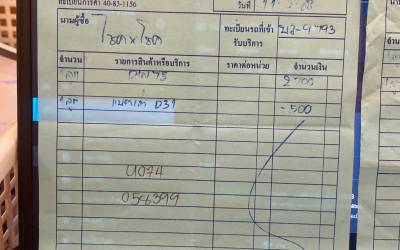 ทะเบียนการค้า 40-83-1156
วันที่
นามผู้ซื้อ โชค x โชค ทะเบียนรถที่เข้ารับบริการ
จำนวน รายการสินค้าหรือบริการ ราคาต่อหน่วย จำนวนเงิน
1 ลูก DIN75 2700
1 ลูก D31 -500
4074
058399